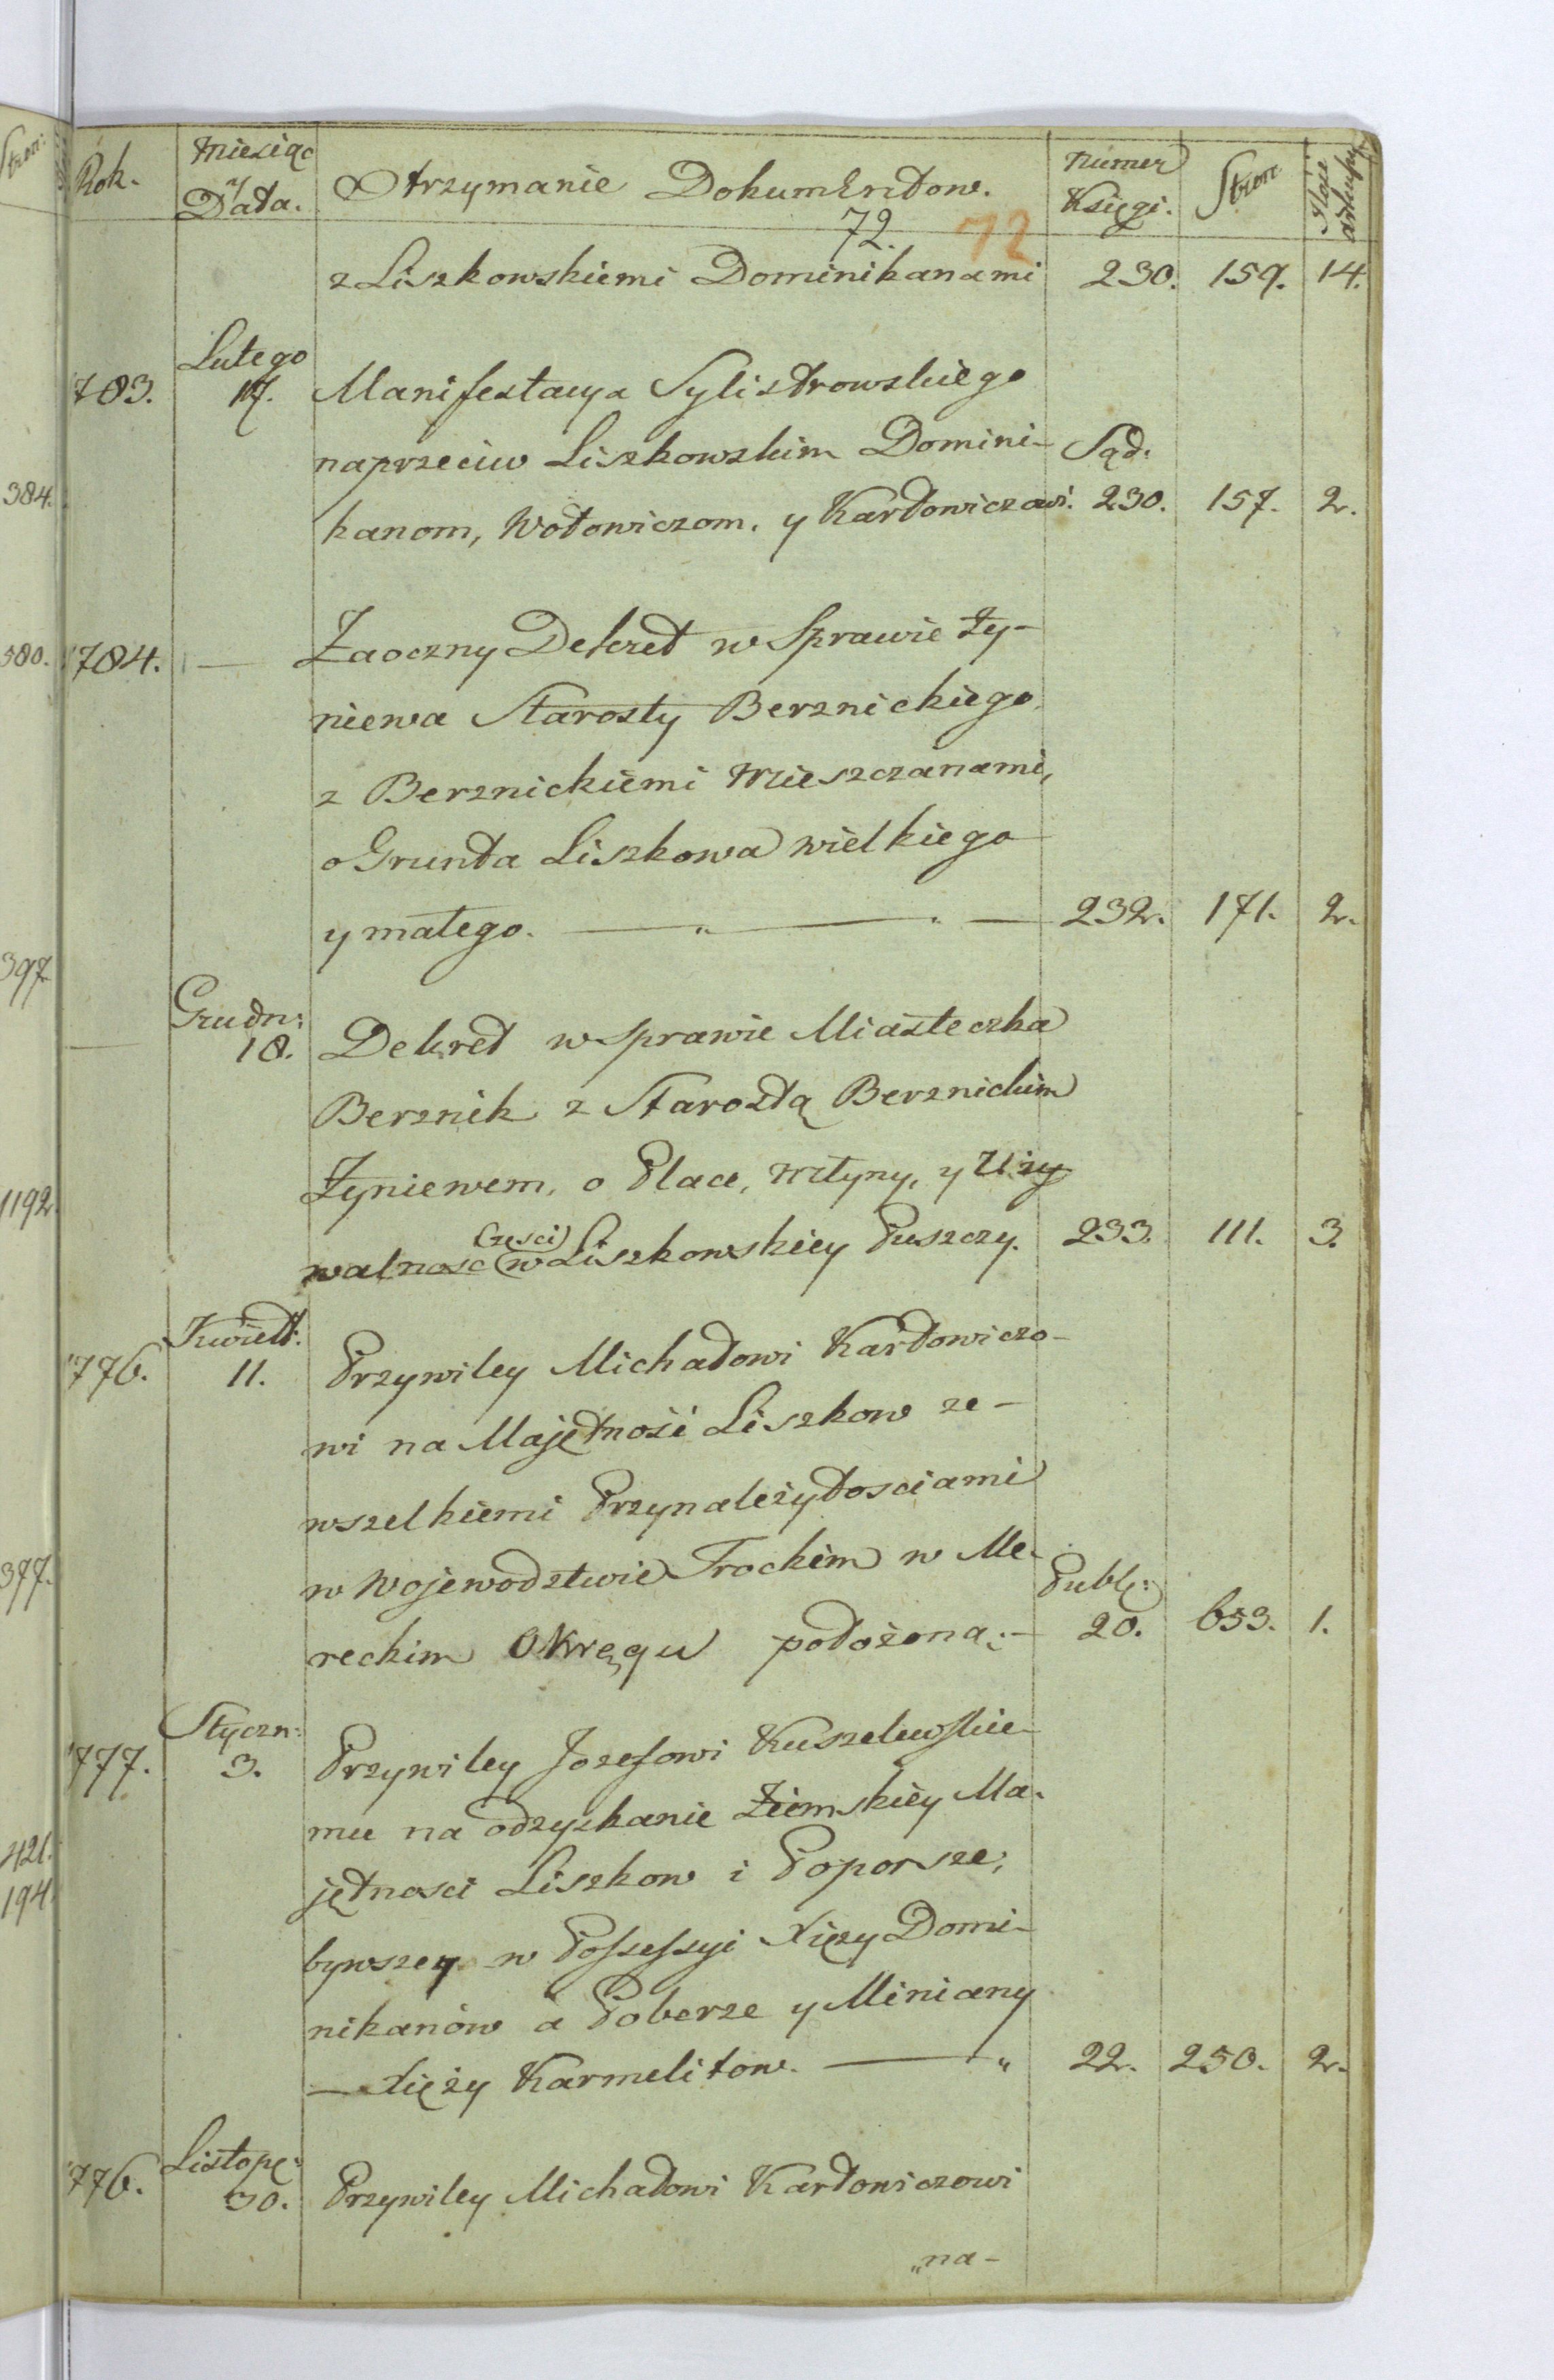 Rok. Miesiąc y Data. Otrzymanie Dokumentow. Numer Księgi. Stron Ilość arkuszy
72. 72
z Liszkowskiemi Dominikanami 230. 159. 14.
1783. Lutego 17. Manifestacya Sylistrowskiego
naprzeciw Liszkowskim Domini- Sąd:
kanom, Wołowiczom, y Karłowiczowi. 230. 157. 2.
384.
1784. — Zaoczny Dekret w Sprawie Ży-
580.
niewa Starosty Berznickiego
z Berznickiemi Mieszczanami,
o Grunta Liszkowa wielkiego
y małego. — „ — 232. 171. 2.
397
— Grudn: 18. Dekret w sprawie Miasteczka
Berznik z Starostą Berznickim
Żyniewem, o Place, Młyny, y Uży
1192.
walnosc (w Częsci) Liszkowskiey Puszczy. 233. 111. 3.
1776. Kwiet: 11. Przywiley Michałowi Karłowiczo-
wi na Majętność Liszkow ze-
wszelkiemi Przynależytosciami
w Wojewodztwie Trockim w Me- Publ:
377.
reckim Okręgu położona;- 20. 653. 1.
1777. Styczn: 3. Przywiley Jozefowi Kuszelewskie-
mu na odzyskanie Ziemskiey Ma-
421.
jętnosci Liszkow i Poporsze,
194.
bywszey w Possessyi Xięży Domi-
nikanów a Poberze y Miniany
— Xięży Karmelitow. — „ 22. 250. 2.
1776. Listop: 30. Przywiley Michałowi Karłowiczowi
„na-